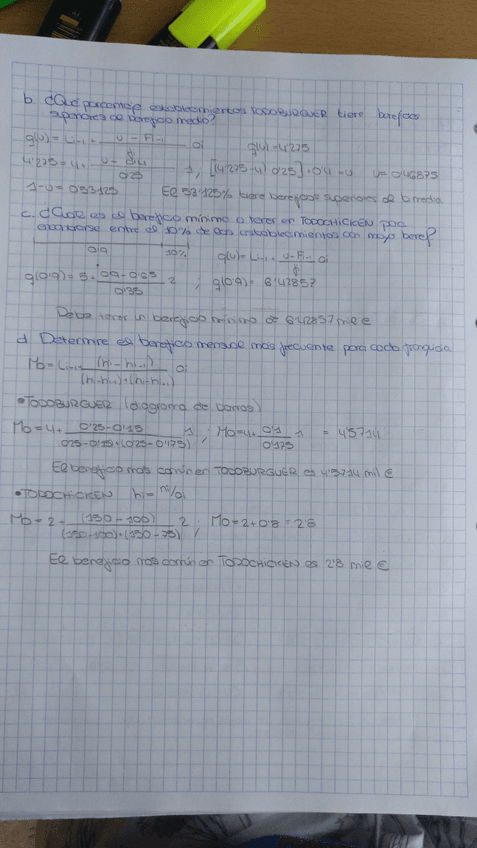 b. ¿Qué porcentaje establecimientos TODOBURGUER tiene beneficios
superiores al beneficio medio?
g(u) = Li-1 + u - Fi-1 / fi ai    g(u) = 4'275
4'275 = 4 + u - / 0'25 1, [(4'275-4) 0'25] + 0'4 = u    u = 0'46875
1-u = 0'53125    El 53'125% tiene beneficios superiores de la media
c. ¿Cuál es el beneficio mínimo a tener en TODOCHICKEN para
encontrarse entre el 10% de los establecimientos con mayor benef?
0'9    10%    g(u) = Li-1 + u - Fi-1 / fi ai
g(0'9) = 5 + 0'9 - 0'65 / 0'35 2, g(0'9) = 6'42857
Debe tener un beneficio mínimo de 6'42857 mil €
d. Determine el beneficio mensual más frecuente para cada franquicia
Mo = Li-1 + (hi - hi-1) / (hi - hi-1) + (hi - hi+1) ai
• TODOBURGUER (diagrama de barras)
Mo = 4 + 0'25 - 0'15 / 0'25 - 0'15 + (0'25 - 0'175) 1; Mo = 4 + 0'1 / 0'175 1 = 4'5714
El beneficio más común en TODOBURGUER es 4'5714 mil €
• TODOCHICKEN    hi = ni/ai
Mo = 2 + (150 - 100) / (150 - 100) + (150 - 75) 2; Mo = 2 + 0'8 = 2'8
El beneficio más común en TODOCHICKEN es 2'8 mil €